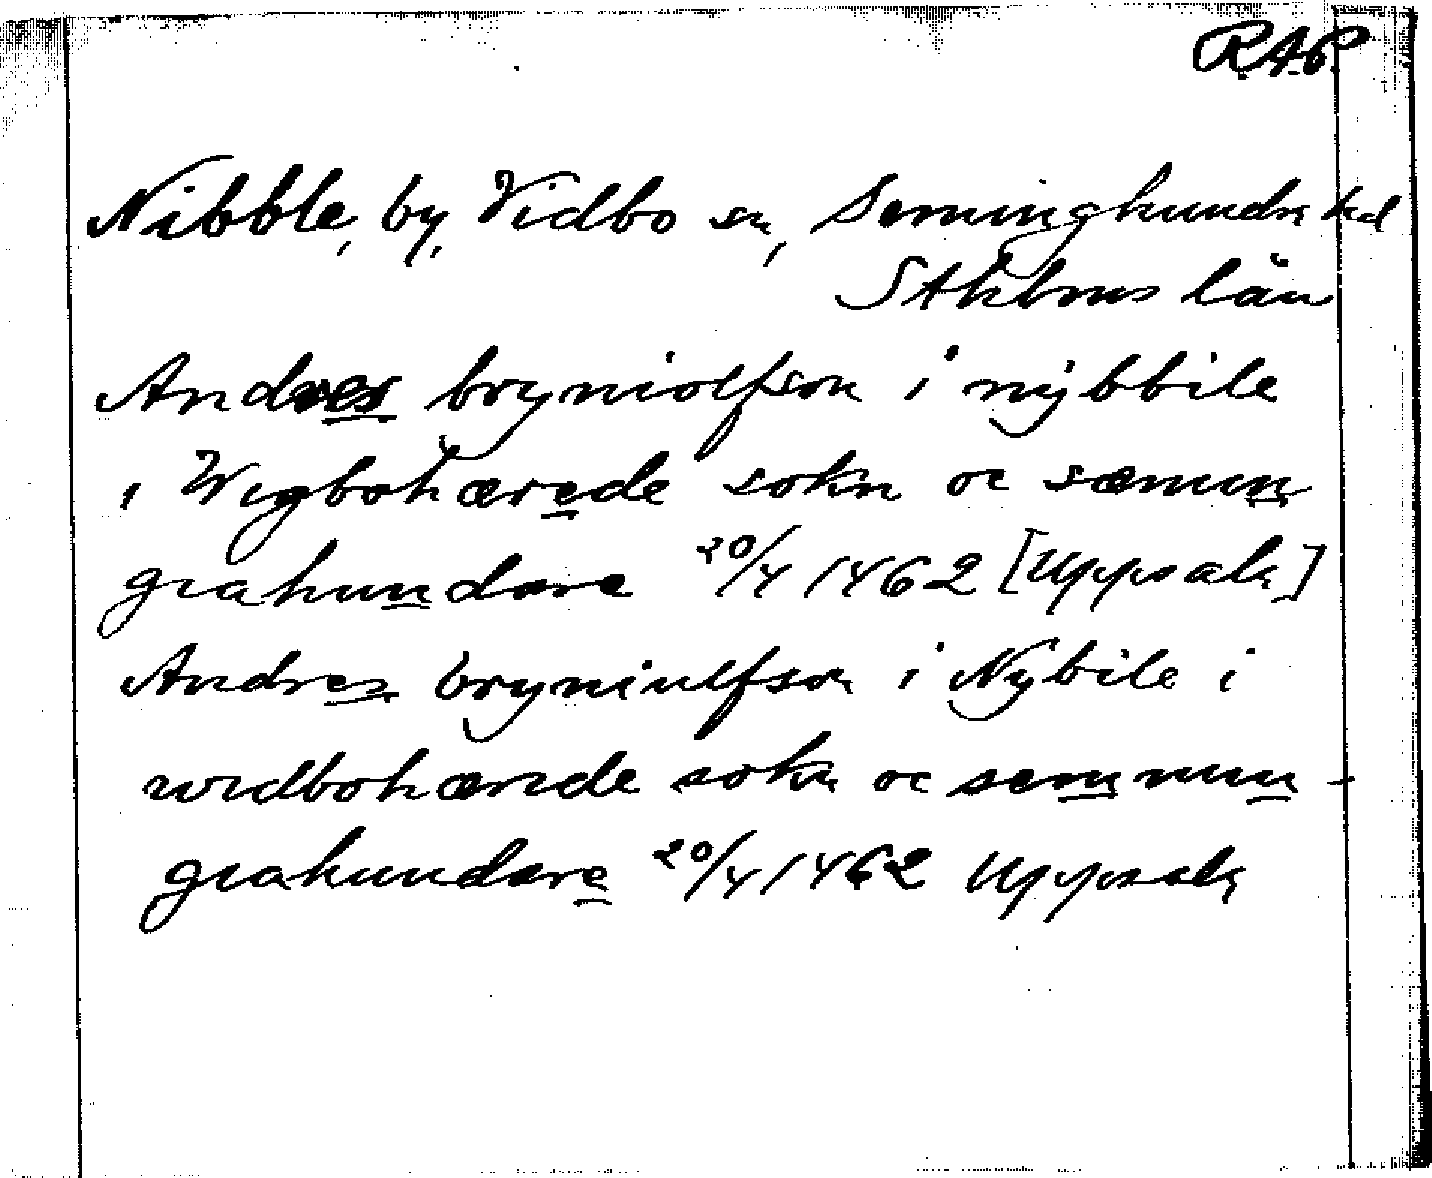 RAP.
Nibble, by, Vidbo sn, Seminghundra hd
Sthlms län
Andres bryniolfson i nybbile
i Wegbohærede sokn oc sæmun
grahundare 20/4 1462 [Uppsala]
Andres bryniulfson i Nybile i
widbohærede sokn oc semmun-
grahundare 20/4 1462 Uppsala